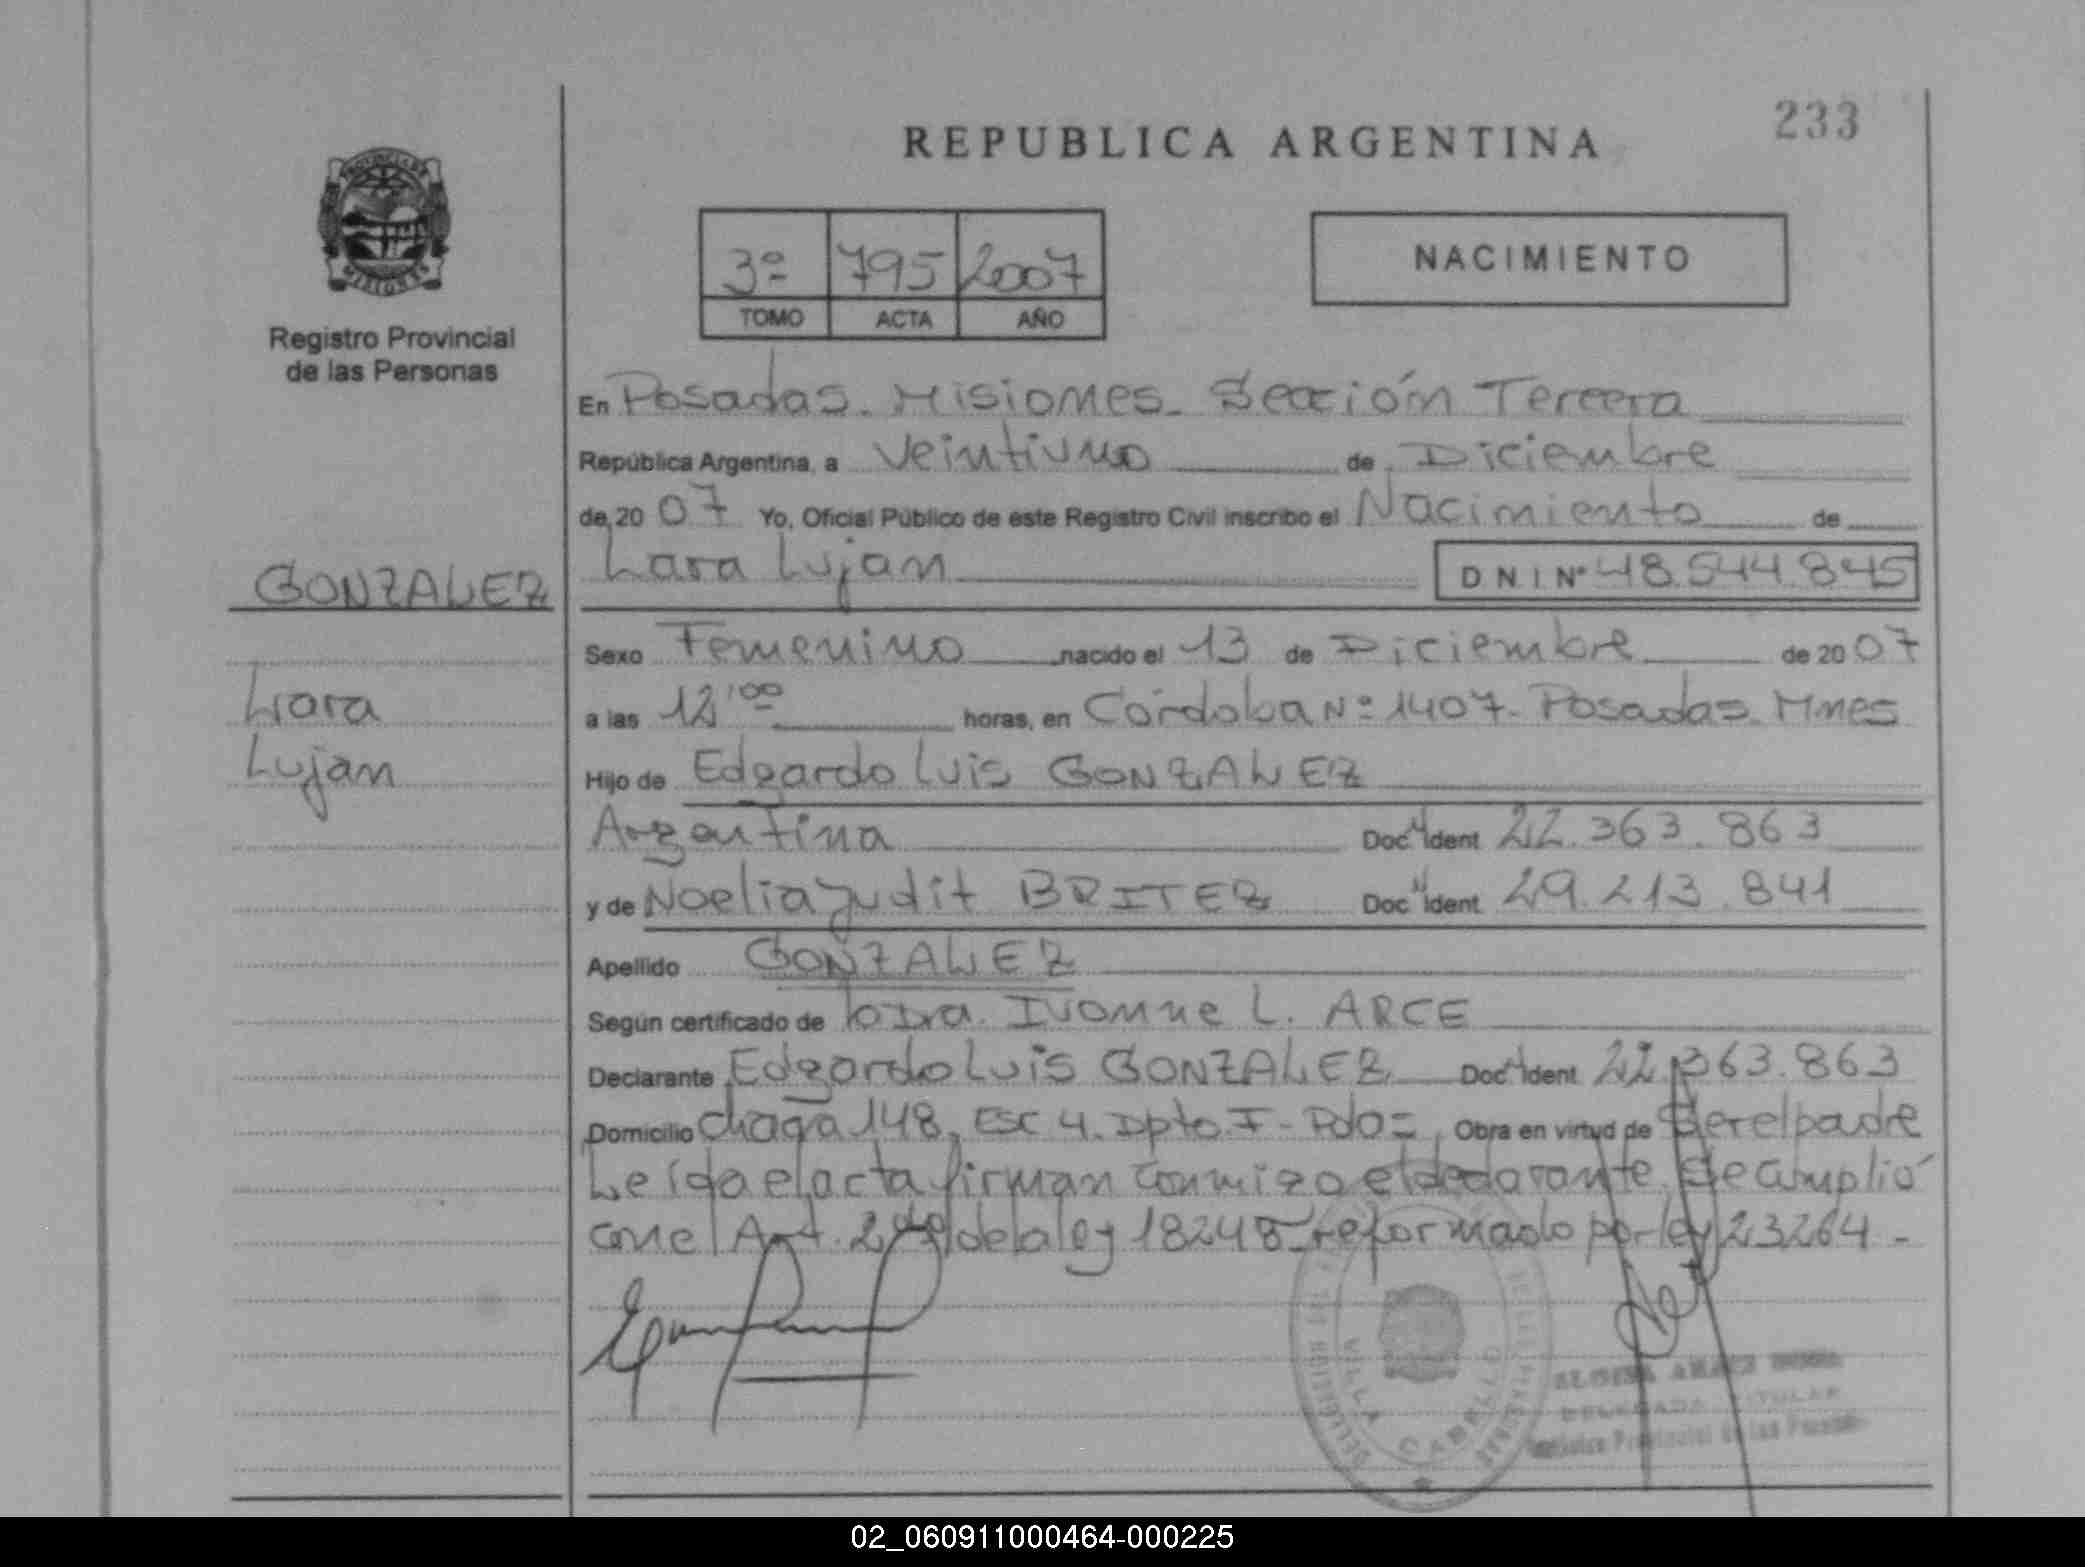 233
REPUBLICA ARGENTINA
PROVINCIA DE
MISIONES
Registro Provincial
de las Personas
3º 795 2007
TOMO ACTA AÑO
NACIMIENTO
En Posadas. Misiones. Sección Tercera
República Argentina, a Veintiuno de Diciembre
de 20 07 Yo, Oficial Público de este Registro Civil inscribo el Nacimiento de
GONZALEZ
Lara Lujan D N I Nº 48.544.845
Sexo Femenino nacido el 13 de Diciembre de 20 07
Lara
Lujan
a las 12'00 horas, en Córdoba Nº 1407. Posadas. Mnes
Hijo de Edgardo Luis GONZALEZ
Argentina Doc Ident 22.363.863
y de Noelia Judit BRITEZ Doc Ident 29.213.841
Apellido GONZALEZ
Según certificado de Dra. Ivonne L. ARCE
Declarante Edgardo Luis GONZALEZ Doc Ident 22.363.863
Domicilio 148, Esc 4. Dpto I - Pdas , Obra en virtud de Ser el padre
Leída el acta firman conmigo el declarante. Se cumplió
con el Art. 2 de la ley 18248 reformado por ley 23264 -
VILLA CABELLO
DELEGADA TITULAR
Provincial de las
02_060911000464-000225